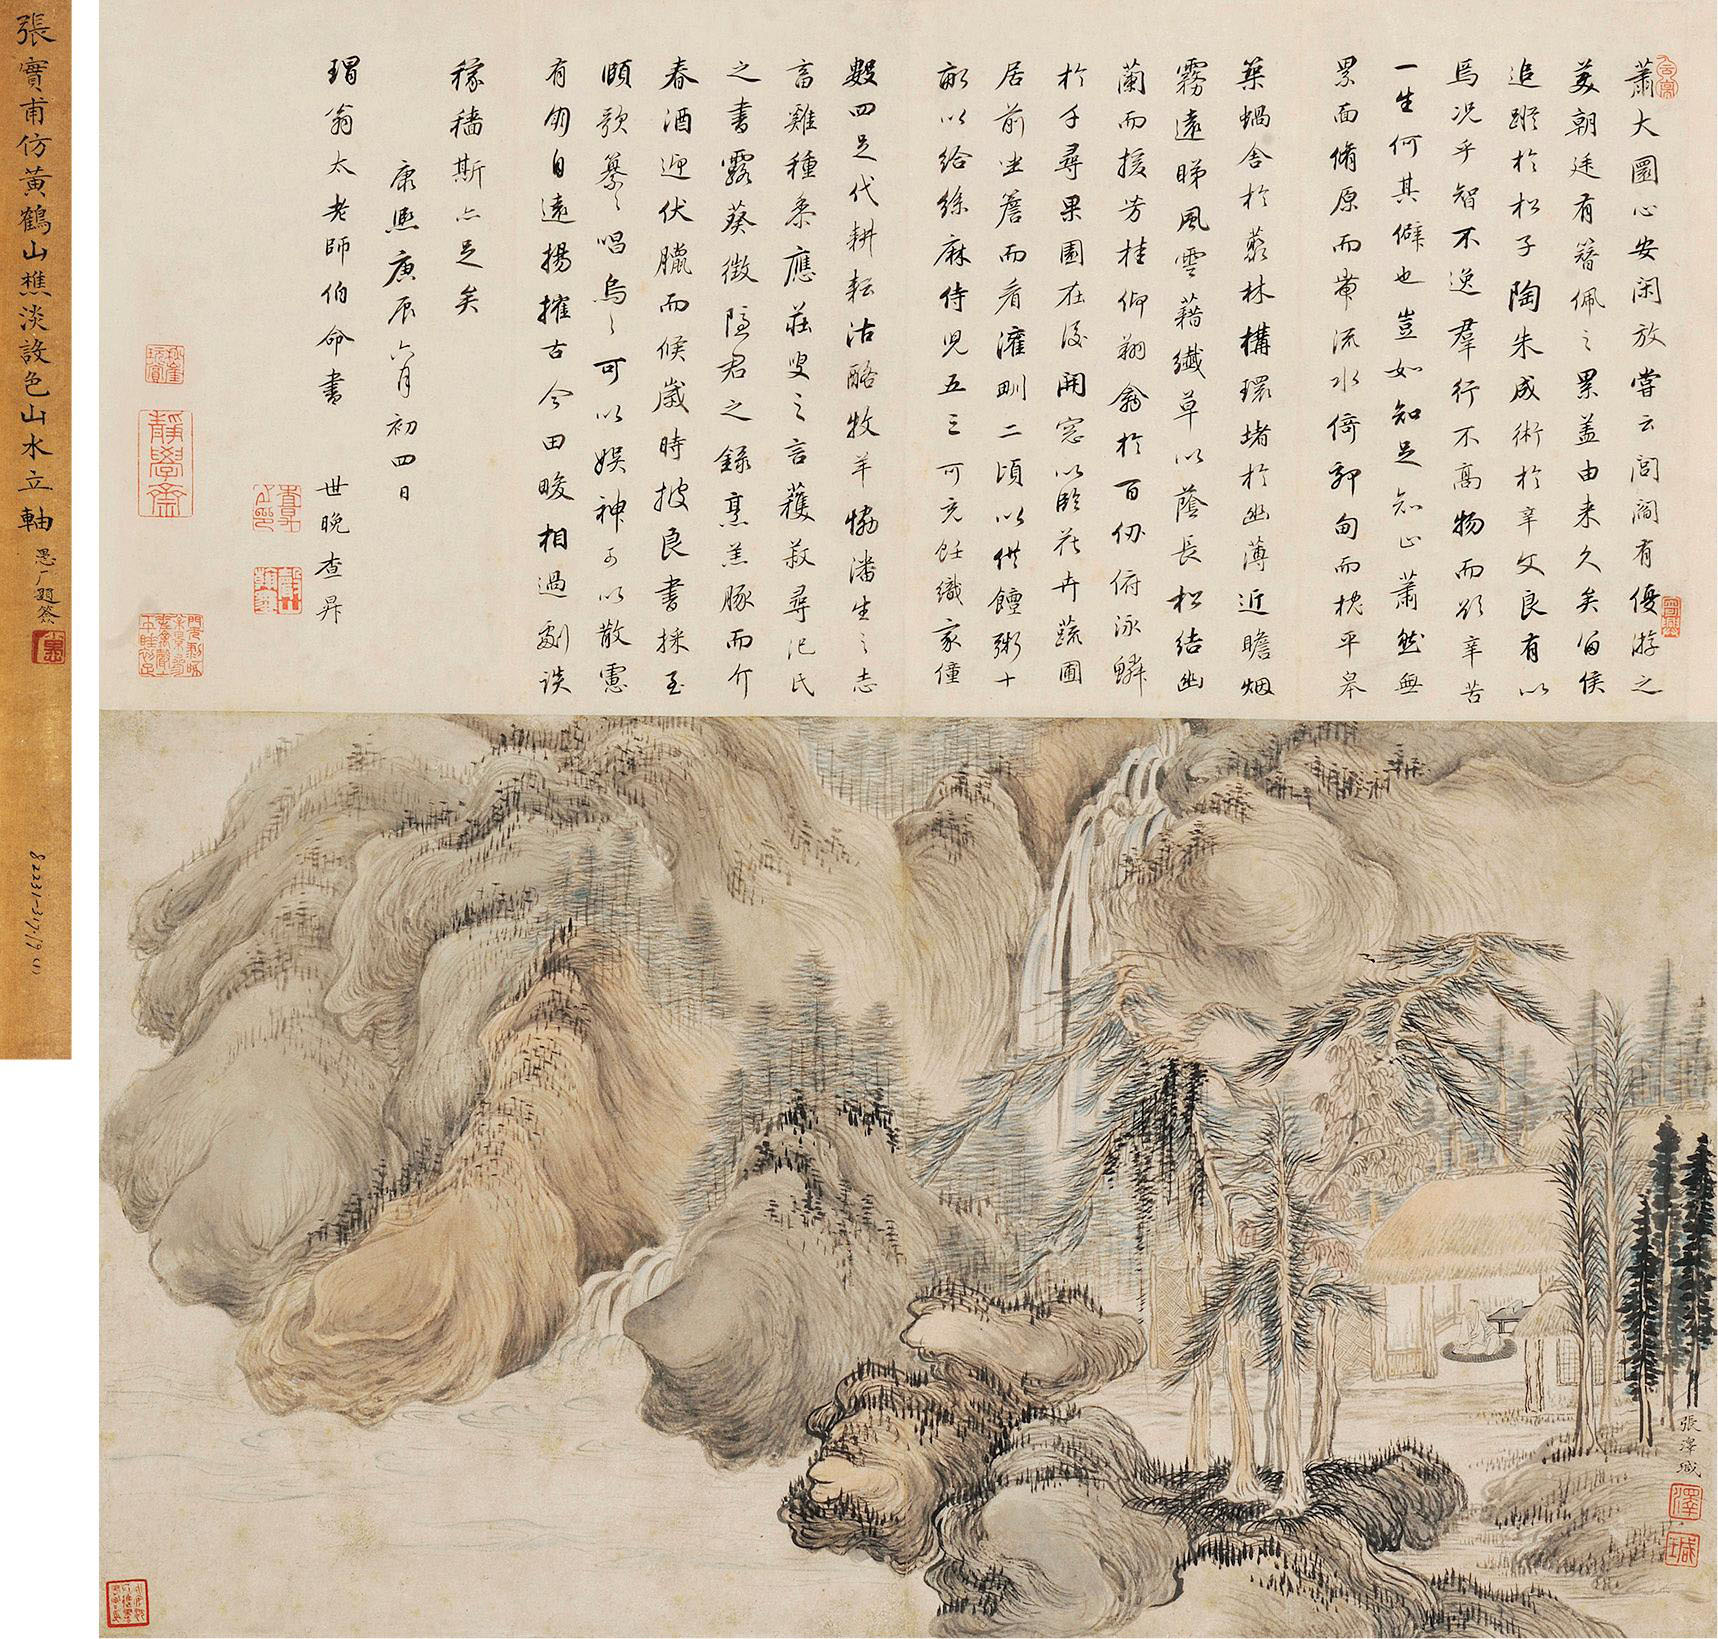 張實甫仿黃鶴山樵淡設色山水立軸
愚厂題簽
82231-317·19 (1)
蕭大圜心安閑放嘗云閭閻有優游之
美朝廷有簪佩之累蓋由来久矣留侯
追蹤於松子陶朱成術於辛文良有以
焉况乎智不逸羣行不高物而欲辛苦
一生何其僻也豈如知足知止蕭然無
累面脩原而帶流水倚郊甸而枕平皋
築蝸舍於叢林構環堵於幽薄近瞻烟
霧遠睇風雲藉纖草以蔭長松結幽
蘭而援芳桂仰翔禽於百仞俯泳鱗
於千尋果園在後開窓以臨花卉蔬圃
居前坐簷而看灌甽二頃以供饘粥十
畝以給絲麻侍児五三可充紝織家僮
數四足代耕耘沽酪牧羊協潘生之志
畜雞種黍應莊叟之言穫菽尋氾氏
之書露葵徴隱君之録烹羔豚而介
春酒迎伏臘而候歲時披良書採至
頤歌纂纂唱烏烏可以娯神可以散慮
有朋自遠揚搉古今田畯相過劇談
稼穡斯亦足矣
康熙庚辰六月初四日
瑁翁太老師伯命書 世晚查昇
靜學齋
張澤瑊
澤
瑊